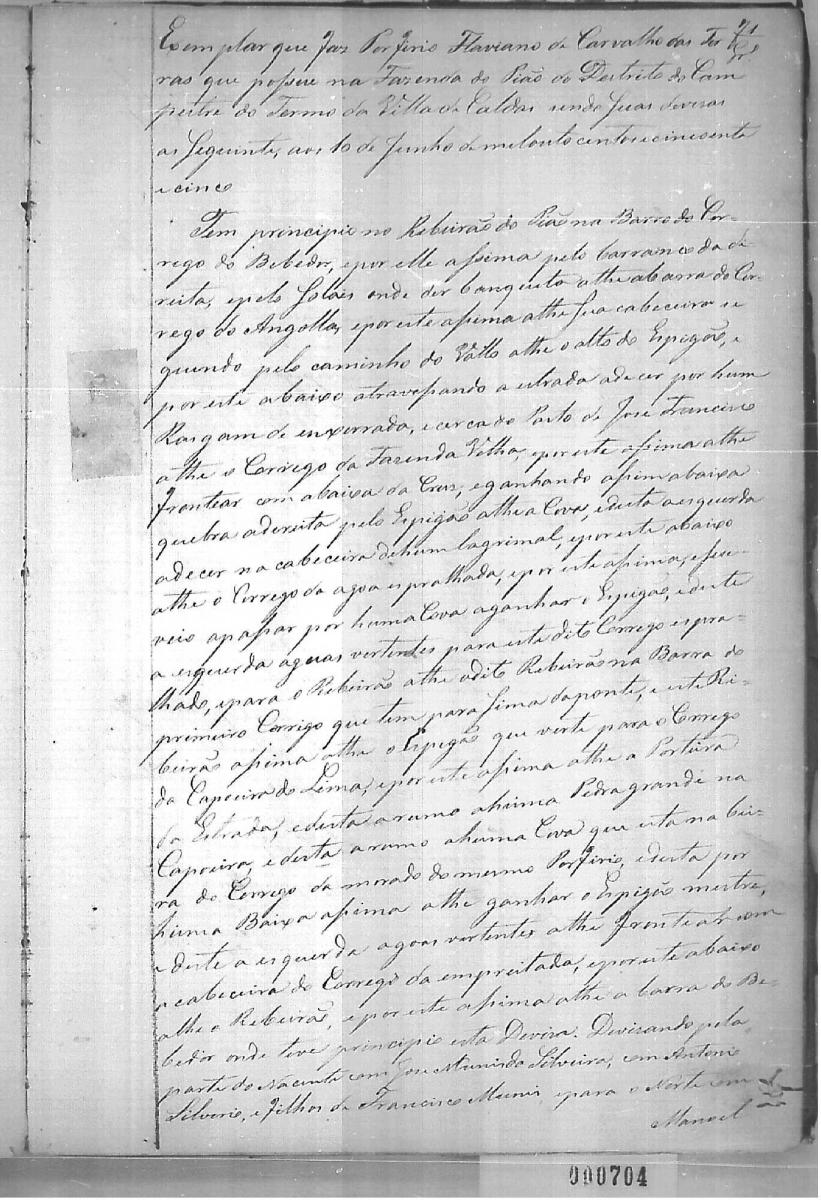 Exemplar que faz Porfirio Flaviano de Carvalho das Ter
ras que possue na Fazenda do Pião do Destrito do Cam
pestre do Termo da Villa de Caldas sendo suas devisas
as seguintes, aos 10 de Junho de mil outo centos e cincoenta
e cinco
Tem principio no Rebeirão do Pião na Barra do Cor-
rego do Bebedor, e por elle assima pelo barranco da di-
reita, e pelo donde der banqueta athe a barra do Cor-
rego do Angolla, e por este assima athe sua cabeceira se
guindo pelo caminho do Vallo athe o alto do Espigão, e
por este abaixo atravessando a estrada a decer por hum
Rasgam de enxorrada, e cerca do Pasto de Jose Francisco
athe o Corrego da Fazenda Velha, e por este assima athe
frontear com abaixa da Cruz, e ganhando assim abaixa
quebra a dereita pelo Espigão athe a Cova, e desta a esquerda
a decer na cabeceira de hum lagrimal, e por este abaixo
athe o Corrego da agoa espralhada, e por este assima, e
veio a passar por huma Cova a ganhar o Espigão, e deste
a esquerda aguas vertentes para este dito Corrego espra-
lhado, e para o Rebeirão athe o dito Rebeirão na Barra do
primeiro Corrigo que tem para sima da ponte, e este Ri-
beirão assima athe o Espigão que verte para o Corrego
da Capoeira do Lima, e por este assima athe a Porteira
da Estrada, e desta a rumo a huma Pedra grande na
Capoeira, e desta a rumo a huma Cova que esta na bei-
ra do Corrego da morada do mesmo Porfirio, e desta por
huma Baixa assima athe ganhar o Espigão mestre,
e deste a esquerda agoas vertentes athe frontear com
a cabeceira do Corrego da empreitada, e por este abaixo
athe o Rebeirão, e por este assima athe a barra do Be-
bedor onde teve principio esta Deviza. Devizando pela
parte do Nacente com Jose Munis da Silveira, com Antonio
Silverio, e filhos de Francisco Munis, e para o Norte com
Manoel
000704